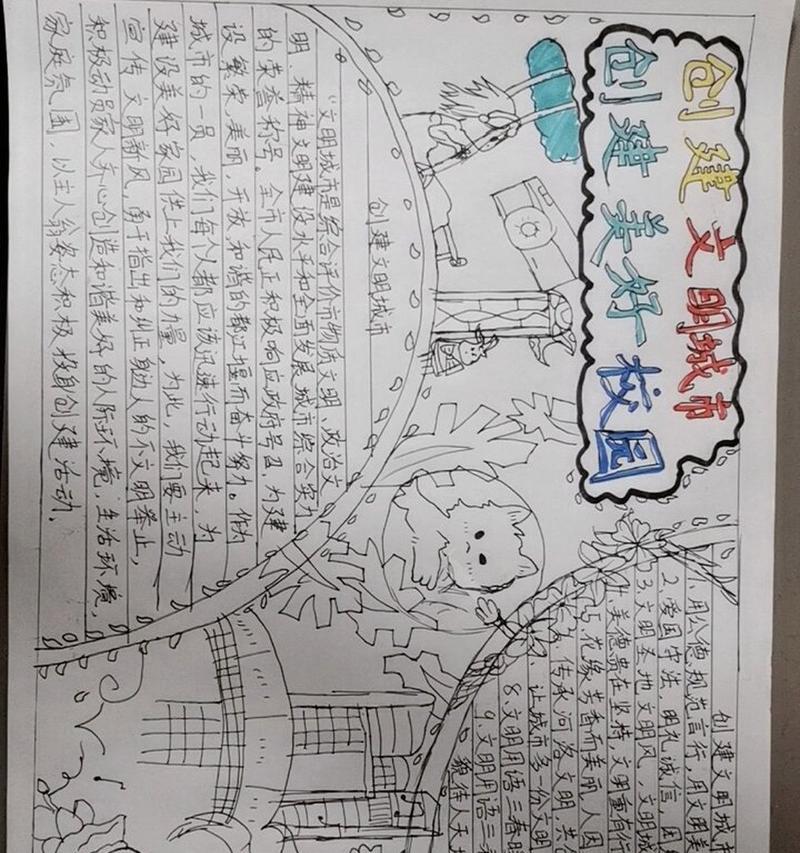 创建文明城市
创建美好校园
创建文明城市
“文明城市是综合评价市物质文明、政治文
明、精神文明建设水平和全面发展城市综合实力
的荣誉称号。全市人民正积极响应政府号召，为建
设繁荣，美丽，开放和谐的都江堰而奋斗努力。作为
城市的一员，我们每个人都应该迅速行动起来，为
建设美好家园供上我们的力量，为此，我们要主动
宣传文明新风，勇于指出和纠正身边人的不文明举止，
积极动员家人齐心创造和谐美好的人际环境，生活环境，
家庭氛围，以主人翁姿态积极投身创建活动。
创建文明城市
1.用公德规范言行，用文明美
2.爱国守法，明礼诚信，团
3.文明圣地文明风，文明城
4.美德贵在坚持，文明重有行
5.花缘芳香而美丽，人因
传承河洛文明，共
让城市多一份文明
8.文明用语三春暖
9.文明用语三
貌佳人天